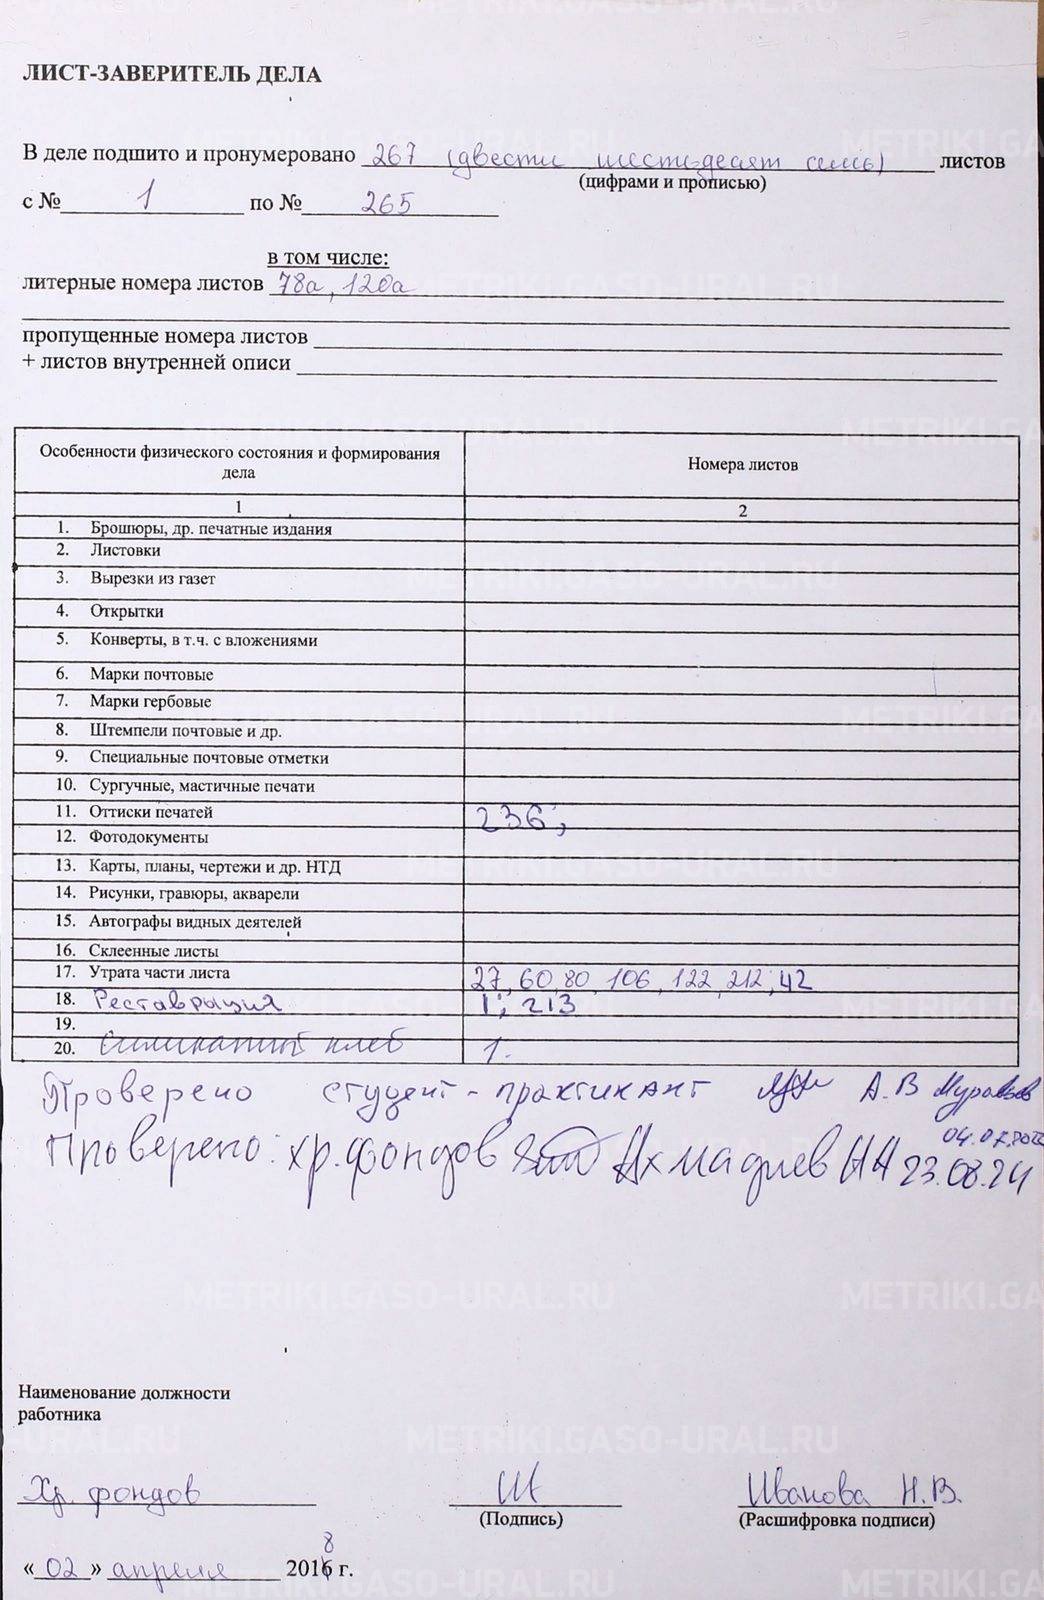 ЛИСТ-ЗАВЕРИТЕЛЬ ДЕЛА
В деле подшито и пронумеровано 267 (двести шестьдесят семь) листов
(цифрами и прописью)
с № 1 по № 265
в том числе:
литерные номера листов 78а, 120а
пропущенные номера листов
+ листов внутренней описи
Особенности физического состояния и формирования дела Номера листов
1 2
1. Брошюры, др. печатные издания
2. Листовки
3. Вырезки из газет
4. Открытки
5. Конверты, в т.ч. с вложениями
6. Марки почтовые
7. Марки гербовые
8. Штемпели почтовые и др.
9. Специальные почтовые отметки
10. Сургучные, мастичные печати
11. Оттиски печатей 236;
12. Фотодокументы
13. Карты, планы, чертежи и др. НТД
14. Рисунки, гравюры, акварели
15. Автографы видных деятелей
16. Склеенные листы
17. Утрата части листа 27, 60, 80, 106, 122, 212; 42
18. Реставрация 1; 213
19.
20. Силикатный клей 1.
Проверено студент-практикант А.В Муравьев
04.07.2022
Проверено: хр.фондов Ахмадиев НА 23.08.24
Наименование должности
работника
Хр. фондов Иванова Н.В.
(Подпись) (Расшифровка подписи)
8
« 02 » апреля 2016 г.
METRIKI.GASO-URAL.RU